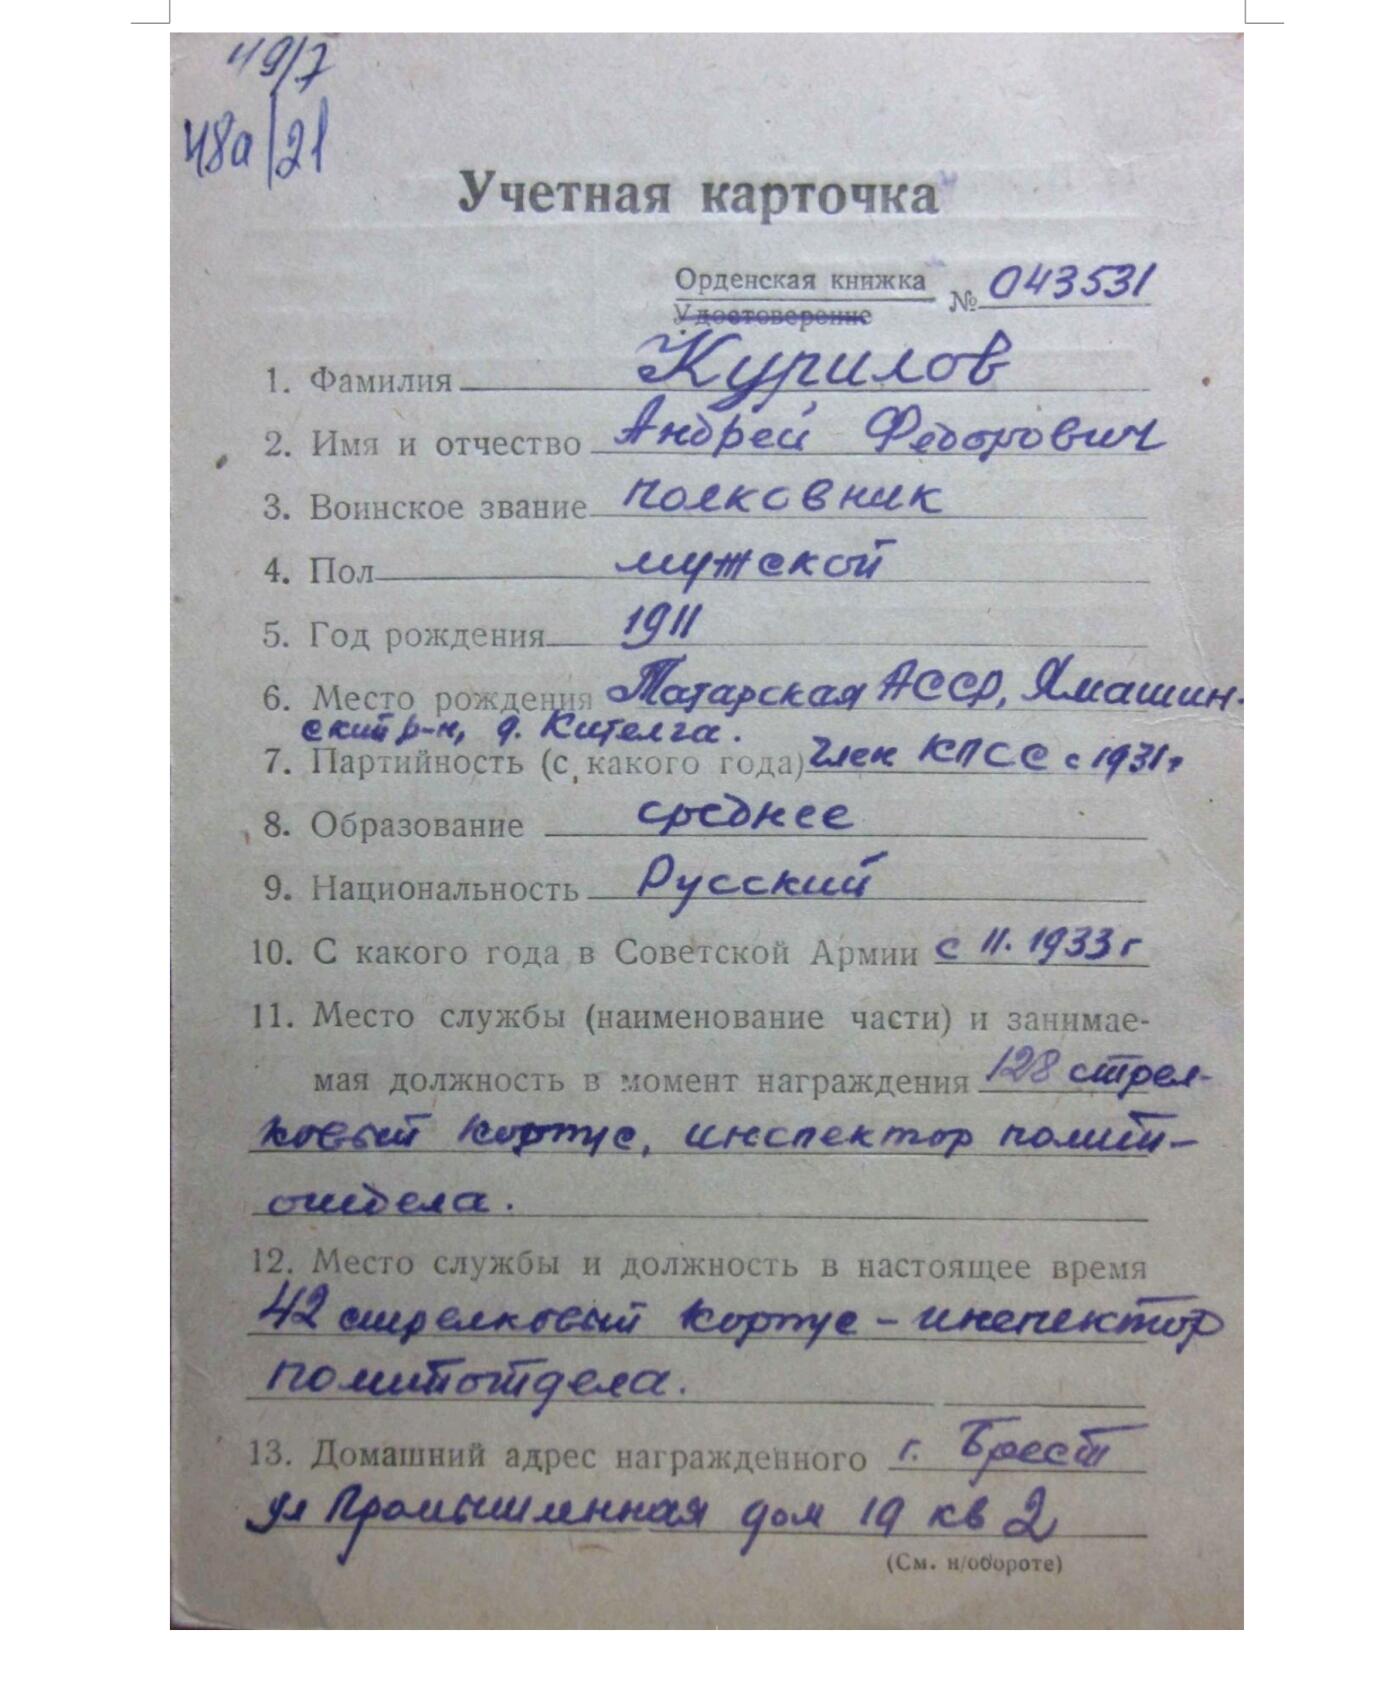 49/7
48а/21
Учетная карточка
Орденская книжка
Удостоверение
№ 043531
1. Фамилия Курилов
2. Имя и отчество Андрей Федорович
3. Воинское звание полковник
4. Пол мужской
5. Год рождения 1911
6. Место рождения Татарская АССР, Ямашин-
ский р-н, д. Кителга.
7. Партийность (с какого года) член КПСС с 1931г
8. Образование среднее
9. Национальность Русский
10. С какого года в Советской Армии с 11.1933 г
11. Место службы (наименование части) и занимае-
мая должность в момент награждения 128 стрел-
ковый корпус, инспектор полит-
отдела.
12. Место службы и должность в настоящее время
42 стрелковый корпус – инспектор
политотдела.
13. Домашний адрес награжденного г. Брест
ул Промышленная дом 19 кв 2
(См. н/обороте)